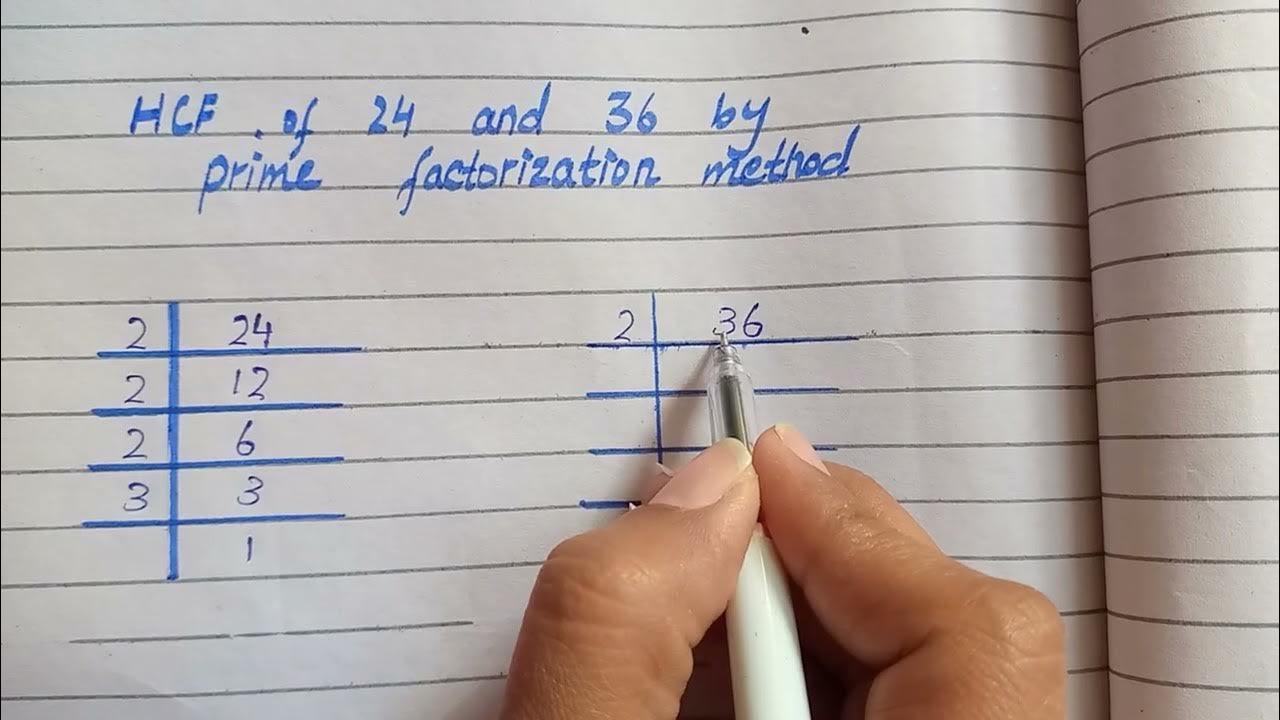 HCF of 24 and 36 by
prime factorization method
2 24
2 12
2 6
3 3
1
2 36